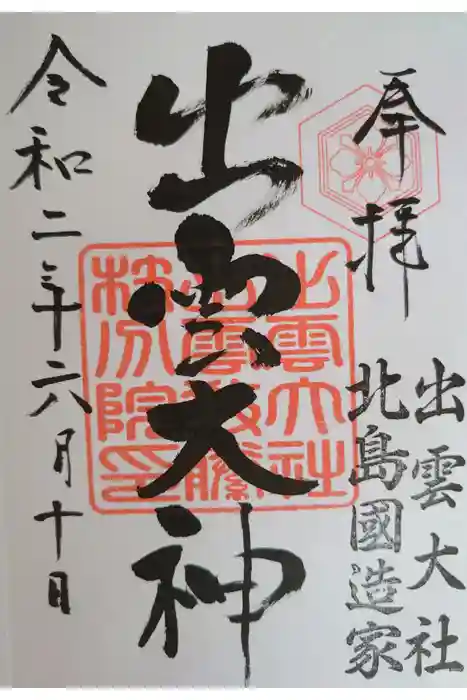 奉拝
出雲大社
北島國造家
出雲大神
令和二年六月十日
出雲大社
出雲教勝
院
印